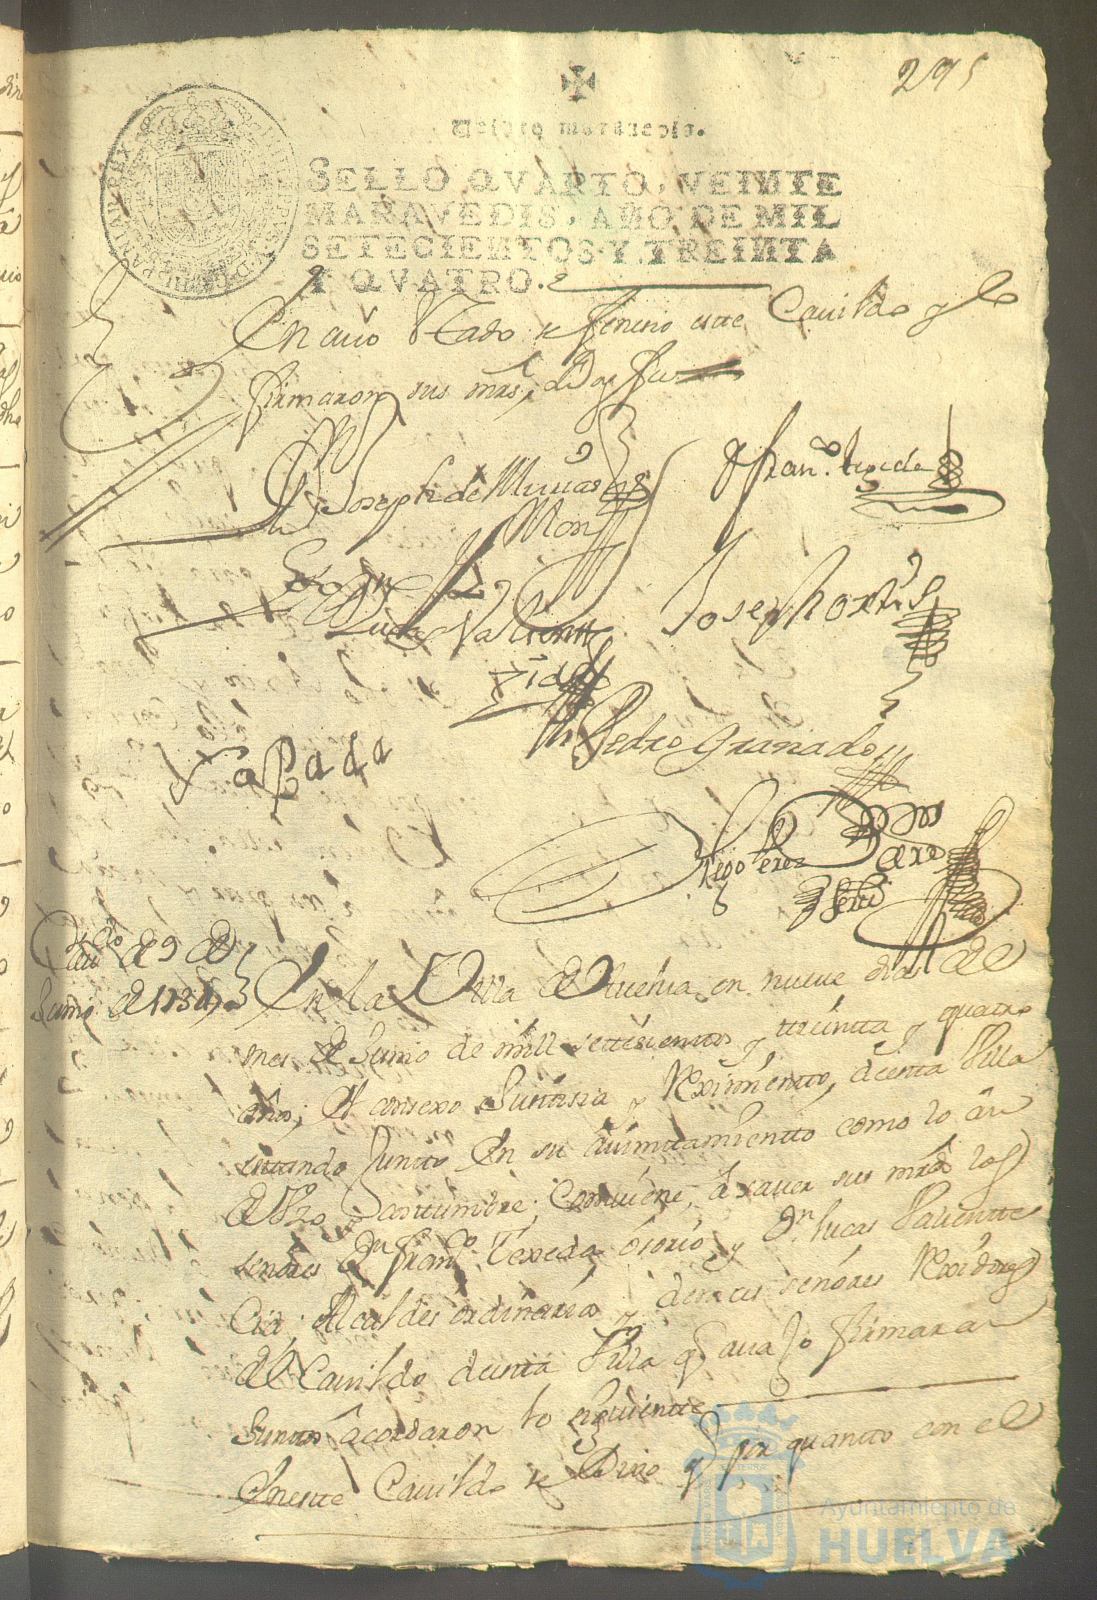 295
Veinte maravedis.
SELLO QVARTO, VEINTE
MARAVEDIS, AÑO DE MIL
SETECIENTOS Y TREINTA
Y QVATRO.
En cuio estado se feneció este Cavildo y lo
firmaron sus mrds, doy fee
Joseph de
Franco. texeda
Mon
Joseph ortis
Lucas Valiente
Zid
Pedro Granado
Diego Perez
Cavdo de 9 de
Junio de 1734
En la Villa de Huelva, en nueve dias del
mes de Junio de mill settesientos y treinta y quatro
años, El consexo Justisia y Reximiento, de esta Villa
estando Junto En su aiuntamientto como lo an
de Uzo y costumbre, Combiene, a saver sus mrds los
señores Dn franco. Texeda osorio, y Dn. lucas Valiente
Cid, Alcaldes ordinarios, y demas señores Rexidores
del Cavildo de esta Villa q avajo firmaran
Juntos acordaron lo siguiente
En este Cavildo se Dixo q por quanto en el
Ayuntamiento de
HUELVA